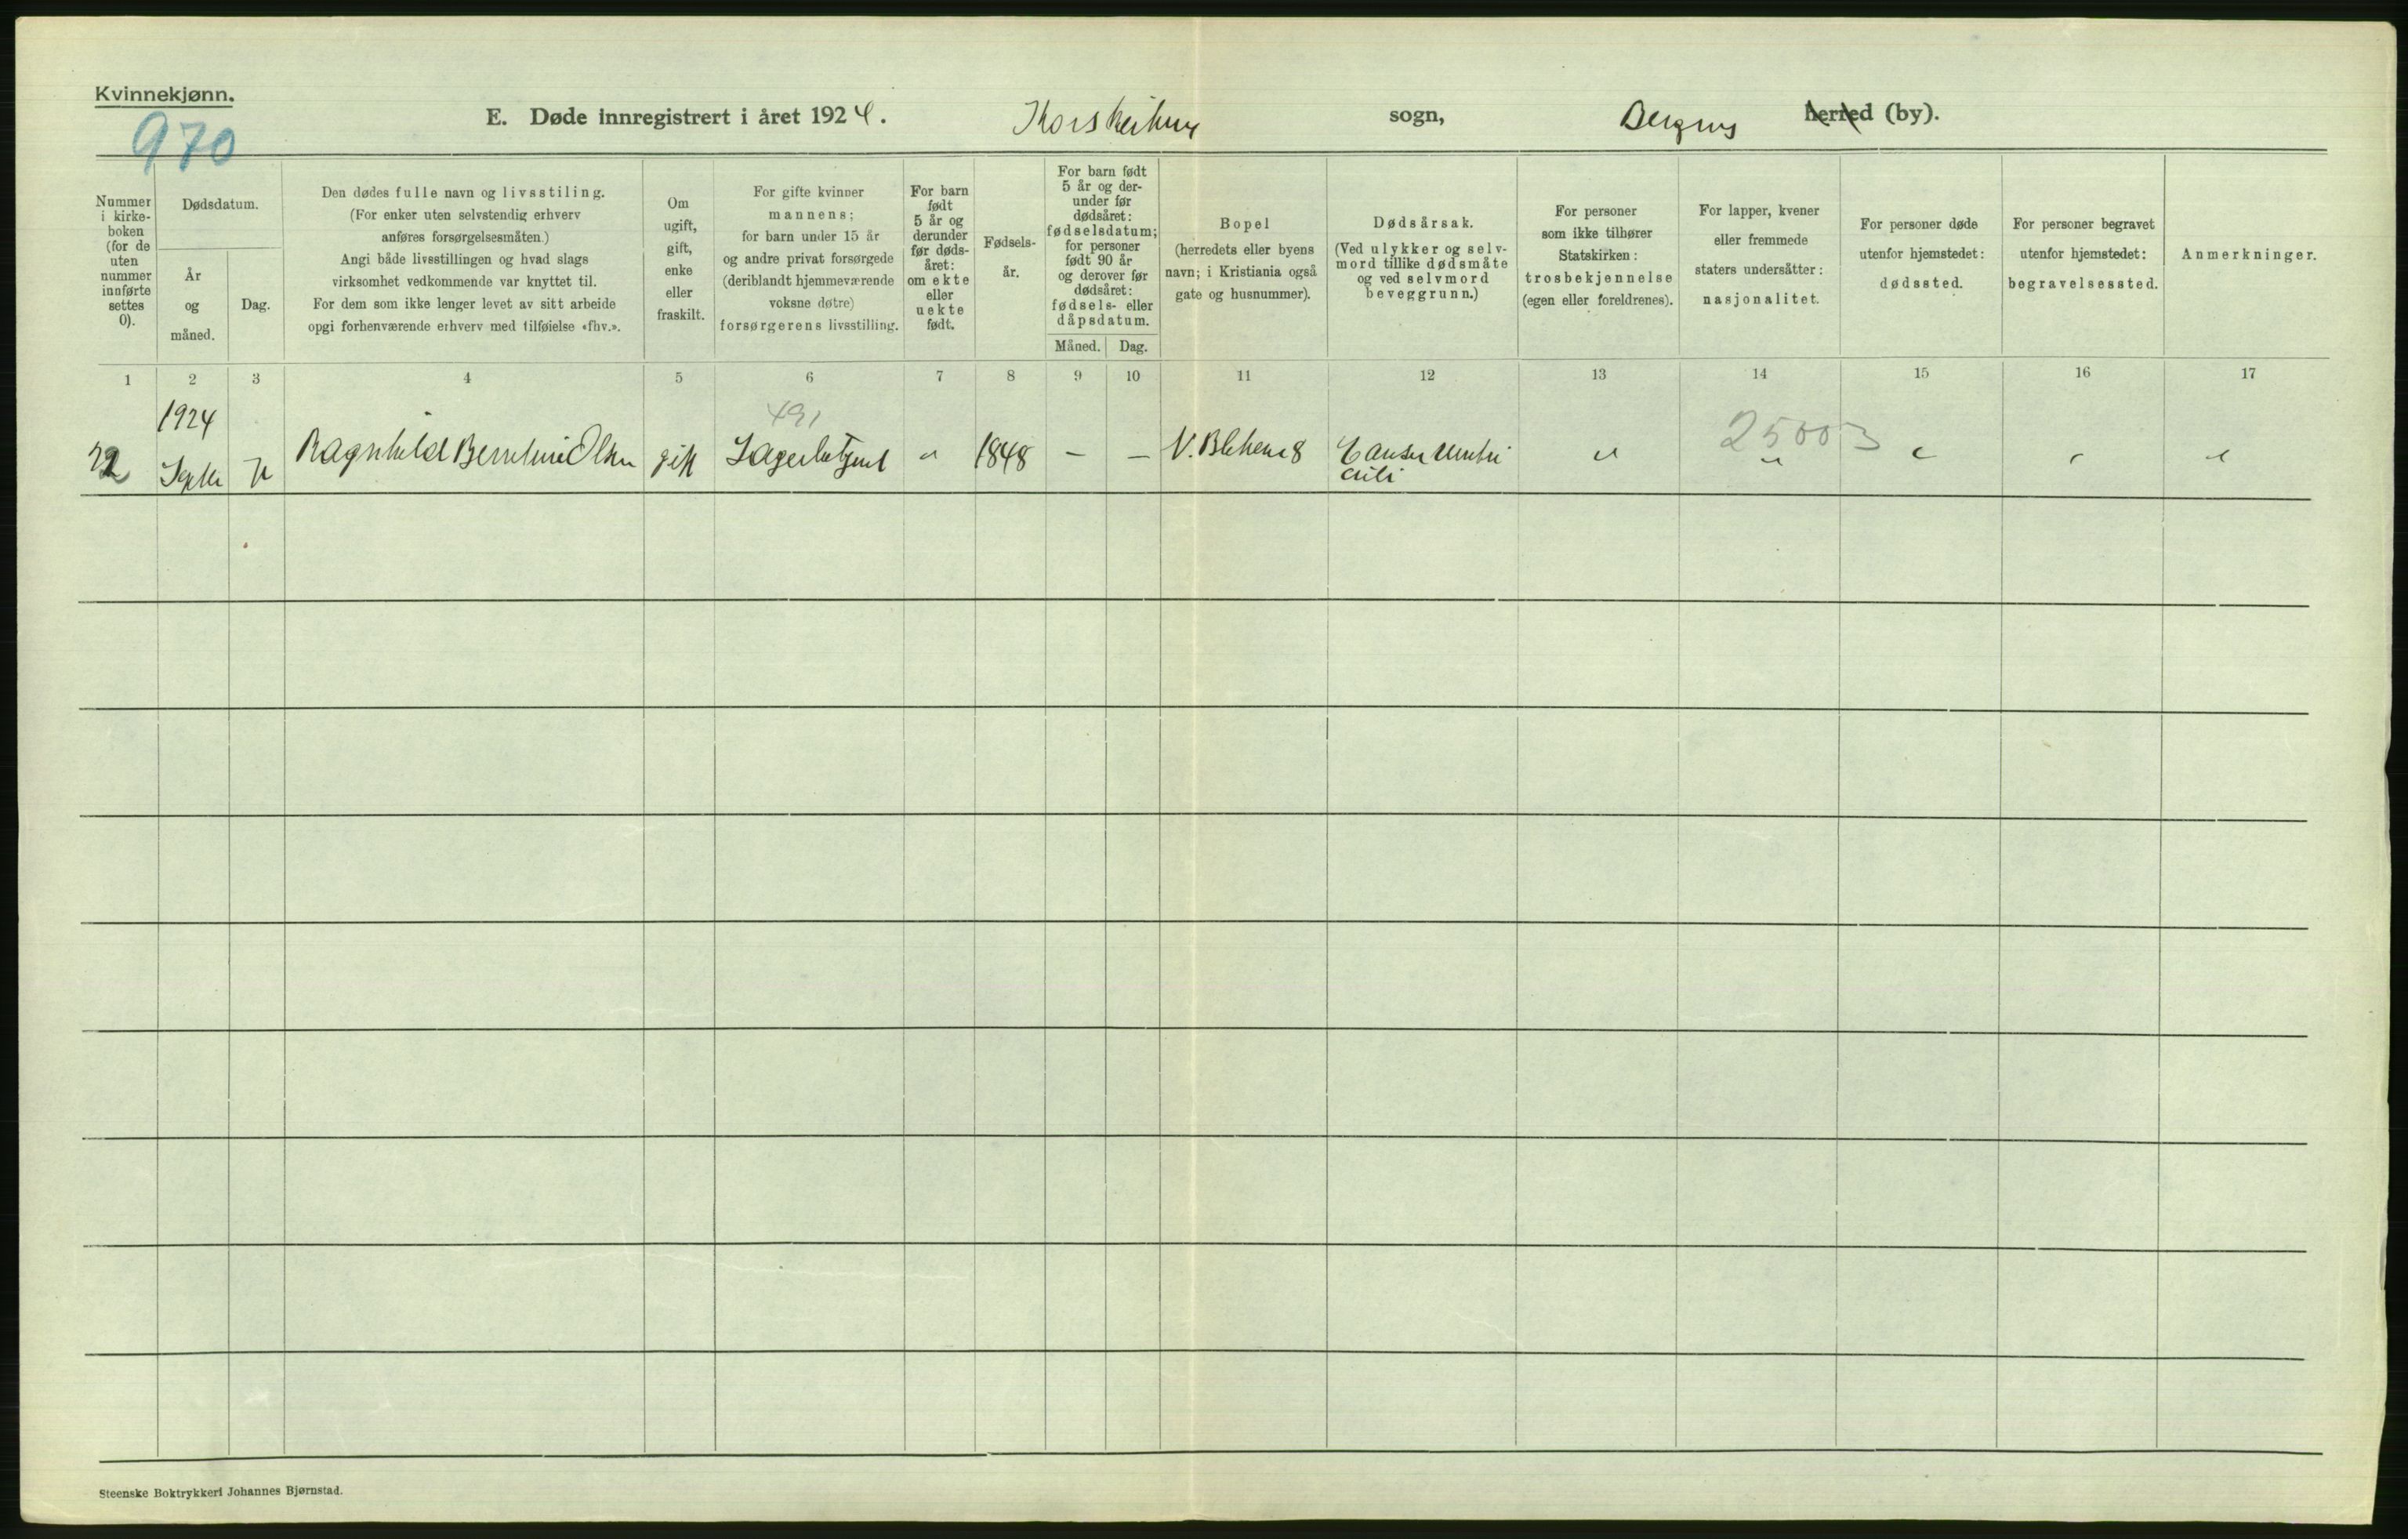 Kvinnekjønn.
970
E. Døde innregistrert i året 1924. Korskirken sogn, Bergens herred (by).
Nummer
i kirke-
boken
(for de
uten
nummer
innførte
settes
0).
Dødsdatum.
År
og
måned.
Dag.
Den dødes fulle navn og livsstiling.
(For enker uten selvstendig erhverv
anføres forsørgelsesmåten.)
Angi både livsstillingen og hvad slags
virksomhet vedkommende var knyttet til.
For dem som ikke lenger levet av sitt arbeide
opgi forhenværende erhverv med tilføielse «fhv.».
Om
ugift,
gift,
enke
eller
fraskilt.
For gifte kvinner
mannens;
for barn under 15 år
og andre privat forsørgede
(deriblandt hjemmeværende
voksne døtre)
forsørgerens livsstilling.
For barn
født
5 år og
derunder
før døds-
året:
om ekte
eller
uekte
født.
Fødsels-
år.
For barn født
5 år og der-
under før
dødsåret:
fødselsdatum;
for personer
født 90 år
og derover før
dødsåret:
fødsels- eller
dåpsdatum.
Måned. Dag.
Bopel
(herredets eller byens
navn; i Kristiania også
gate og husnummer).
Dødsårsak.
(Ved ulykker og selv-
mord tillike dødsmåte
og ved selvmord
beveggrunn.)
For personer
som ikke tilhører
Statskirken:
trosbekjennelse
(egen eller foreldrenes).
For lapper, kvener
eller fremmede
staters undersåtter:
nasjonalitet.
For personer døde
utenfor hjemstedet:
dødssted.
For personer begravet
utenfor hjemstedet:
begravelsessted.
Anmerkninger.
1 2 3 4 5 6 7 8 9 10 11 12 13 14 15 16 17
1924 491 25003
22 Septbr 7 Ragnhild Berntine Olsen gift Lagerbetjent " 1848 – – Cancer ventri
culi
Steenske Boktrykkeri Johannes Bjørnstad.